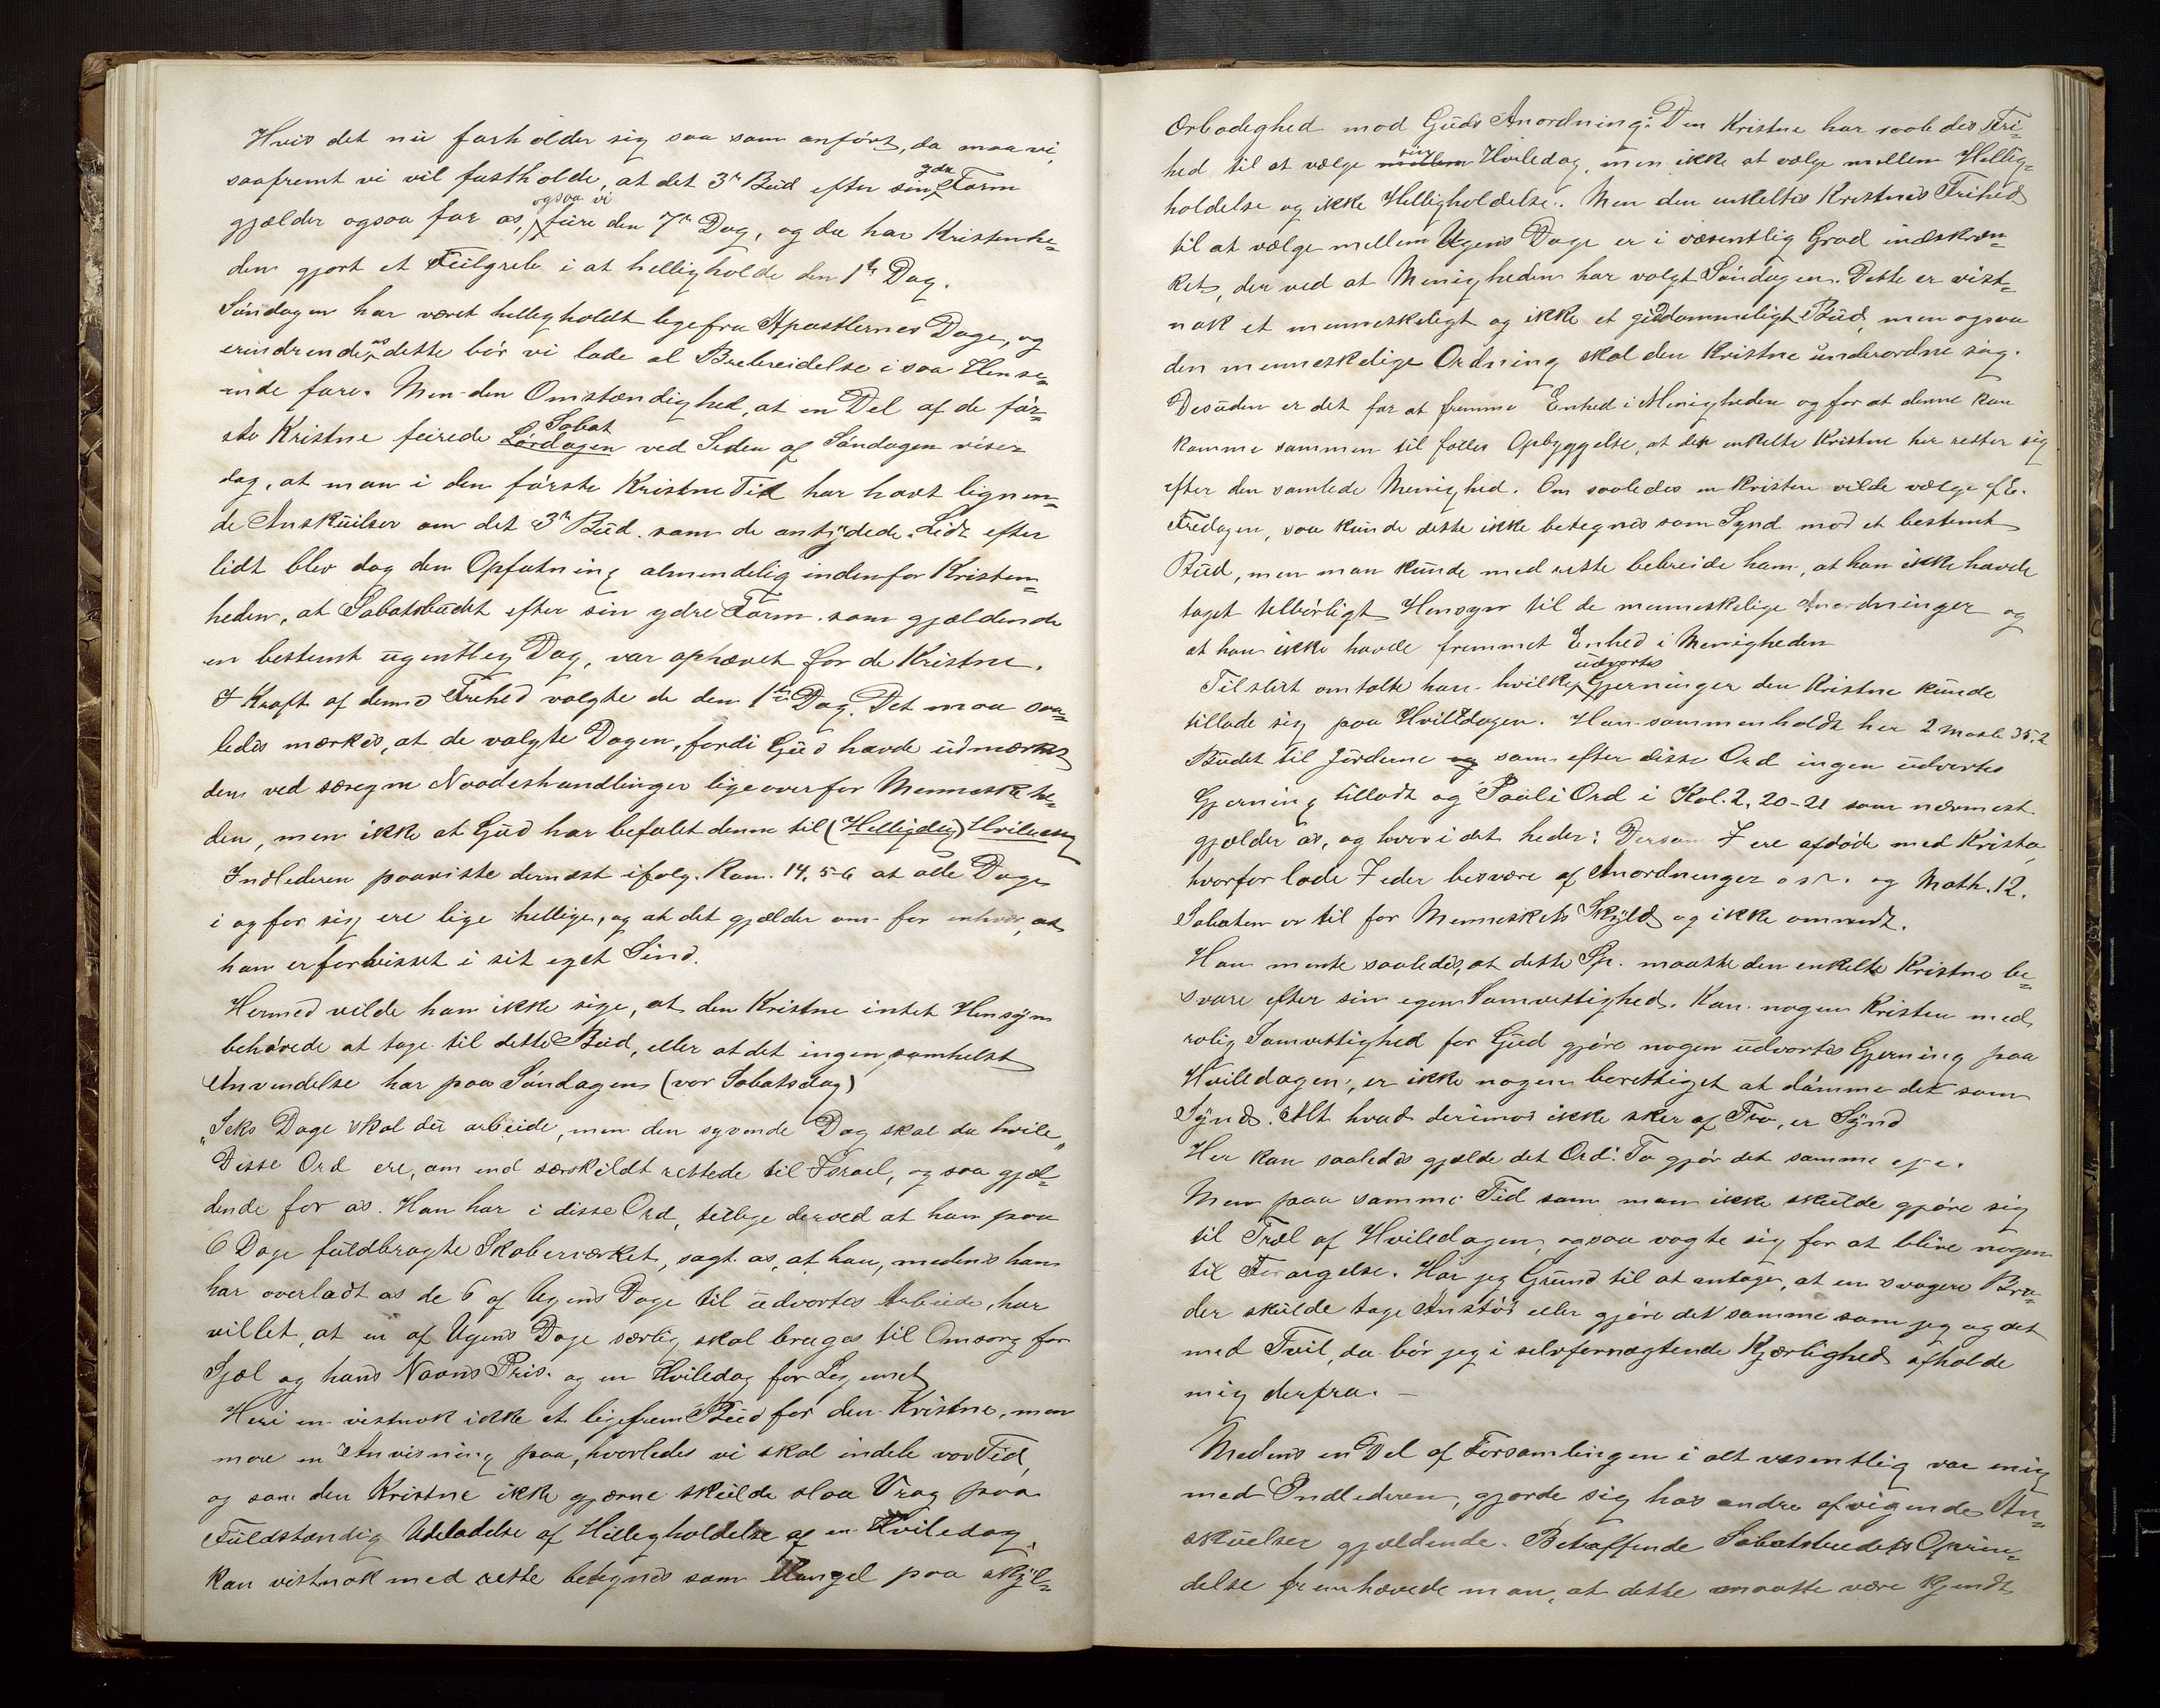 Hvis det nu forholder sig saa som anført, da maa vi,
saafremt vi vil fastholde, at det 3die Bud efter sin ydre Form
gjælder ogsaa for os, ogsaa vi feire den 7de Dag, og da har Kristenhe-
den gjort et Feilgreb i at helligholde den 1ste Dag.
Søndagen har været helligholdt lige fra Apostlernes Dage, og
erindrende os dette bør vi lade al Bebreidelse i saa Hense-
ende fare. Men den Omstændighed, at en Del af de før-
ste Kristne feirede Lørdagen Sabat ved Siden af Søndagen viser
dog, at man i den første Kristne Tid har havt lignen-
de Anskuelser om det 3die Bud som de antydede. Lidt efter
lidt blev dog den Opfatning almindelig indenfor Kristen-
heden, at Sabatsbudet efter sin ydre Form som gjældende
en bestemt ugentlig Dag, var ophævet for de Kristne.
I Kraft af denne Frihed valgte de den 1ste Dag. Det maa saa-
ledes mærkes, at de valgte Dagen, fordi Gud havde udmærket
den ved særegne Naadeshandlinger ligeoverfor Menneskehe-
den, men ikke at Gud har befalet denne til (Helligdag) Hviledag
Indlederen paaviste dernæst ifølg. Rom. 14. 5-6 at alle Dage
i og for sig ere lige hellige, og at det gjælder om for enhver, at
han er forvisset i sit eget Sind.
Hermed vilde han ikke sige, at den Kristne intet Hensyn
behøvede at tage til dette Bud, eller at det ingen somhelst
Anvendelse har paa Søndagen (vor Sabatsdag)
"Seks Dage skal du arbeide, men den syvende Dag skal du hvile"
Disse Ord ere, om end særskildt rettede til Israel, og saa gjæl-
dende for os. Han har i disse Ord, tillige derved at han paa
6 Dage fuldbragte Skaberværket, sagt os, at han, medens han
har overladt os de 6 af Ugens Dage til udvortes Arbeide, har
villet, at en af Ugens Dage særlig skal bruges til Omsorg for
Sjæl og hans Navns Pris. og en Hviledag for Legemet
Heri en vistnok ikke et ligefrem Bud for den Kristne, men
mere en Anvisning paa, hvorledes vi skal indele vor Tid,
og som den Kristne ikke gjerne skulde slaa Vrag paa
Fuldstændig Udeladelse af Helligholdelse af en Hviledag
kan vistnok med rette betegnes som Mangel paa skyl-
Ærbødighed mod Guds Anordning. Den Kristne har saaledes Fri-
hed til at vælge mellem sin Hviledag, men ikke at vælge mellem Hellig-
holdelse og ikke Helligholdelse. Men den enkeltes Kristnes Frihed
til at vælge mellem Ugens Dage er i væsentlig Grad indskræn-
ket, der ved at Menigheden har valgt Søndagen. Dette er vist-
nok et menneskeligt og ikke et guddommeligt Bud, men ogsaa
den menneskelige Ordning skal den Kristne underordne sig.
Desuden er det for at fremme Enhed i Menigheden og for at denne kan
komme sammen til fælles Opbyggelse, at den enkelte Kristne her retter sig
efter den samlede Menighed. Om saaledes en Kristen vilde vælge f.E.
Fredagen, saa kunde dette ikke betegnes som Synd mod et bestemt
Bud, men man kunde med rette bebreide ham, at han ikke havde
taget tilbørligt Hensyn til de menneskelige Anordninger og
at han ikke havde fremmet Enhed i Menigheden
Tilslut omtalte han hvilke udvortes Gjerninger den Kristne kunde
tillade sig paa Hviledagen. Han sammenholdt her 2 Moseb 35.2
Budet til Jøderne og som efter disse Ord ingen udvortes
Gjerning tilladt og Pauli Ord i Kol. 2. 20-21 som nærmest
gjælder os, og hvori det heder: Dersom I ere afdøde med Kristo,
hvorfor lade I eder besvære af Anordninger o s v. og Math. 12.
Sabaten er til for Menneskets Skyld og ikke omvendt.
Han mente saaledes, at dette Sp. maatte den enkelte Kristne be-
svare efter sin egen Samvittighed. Kan nogen Kristen med
rolig Samvittighed for Gud gjøre nogen udvortes Gjerning paa
Hviledagen, er ikke nogen berettiget at dømme det som
Synd. Alt hvad derimod ikke sker af Tro, er Synd
Her kan saaledes gjælde det Ord: To gjør det samme
Men paa samme Tid som man ikke skulde gjøre sig
til Træl af Hviledagen, ogsaa vogte sig for at blive nogen
til Forargelse. Har jeg Grund til at antage, at en svagere Bro-
der skulde tage Anstød eller gjøre det samme som jeg og det
med Tvil, da bør jeg i selvfornægtende Kjærlighed afholde
mig derfra. –
Medens en Del af Forsamlingen i alt væsentlig var enig
med Indlederen, gjorde sig hos andre afvigende An-
skuelser gjældende. Betræffende Sabatsbudets Oprin-
delse fremhævede man, at dette maatte være kjendt